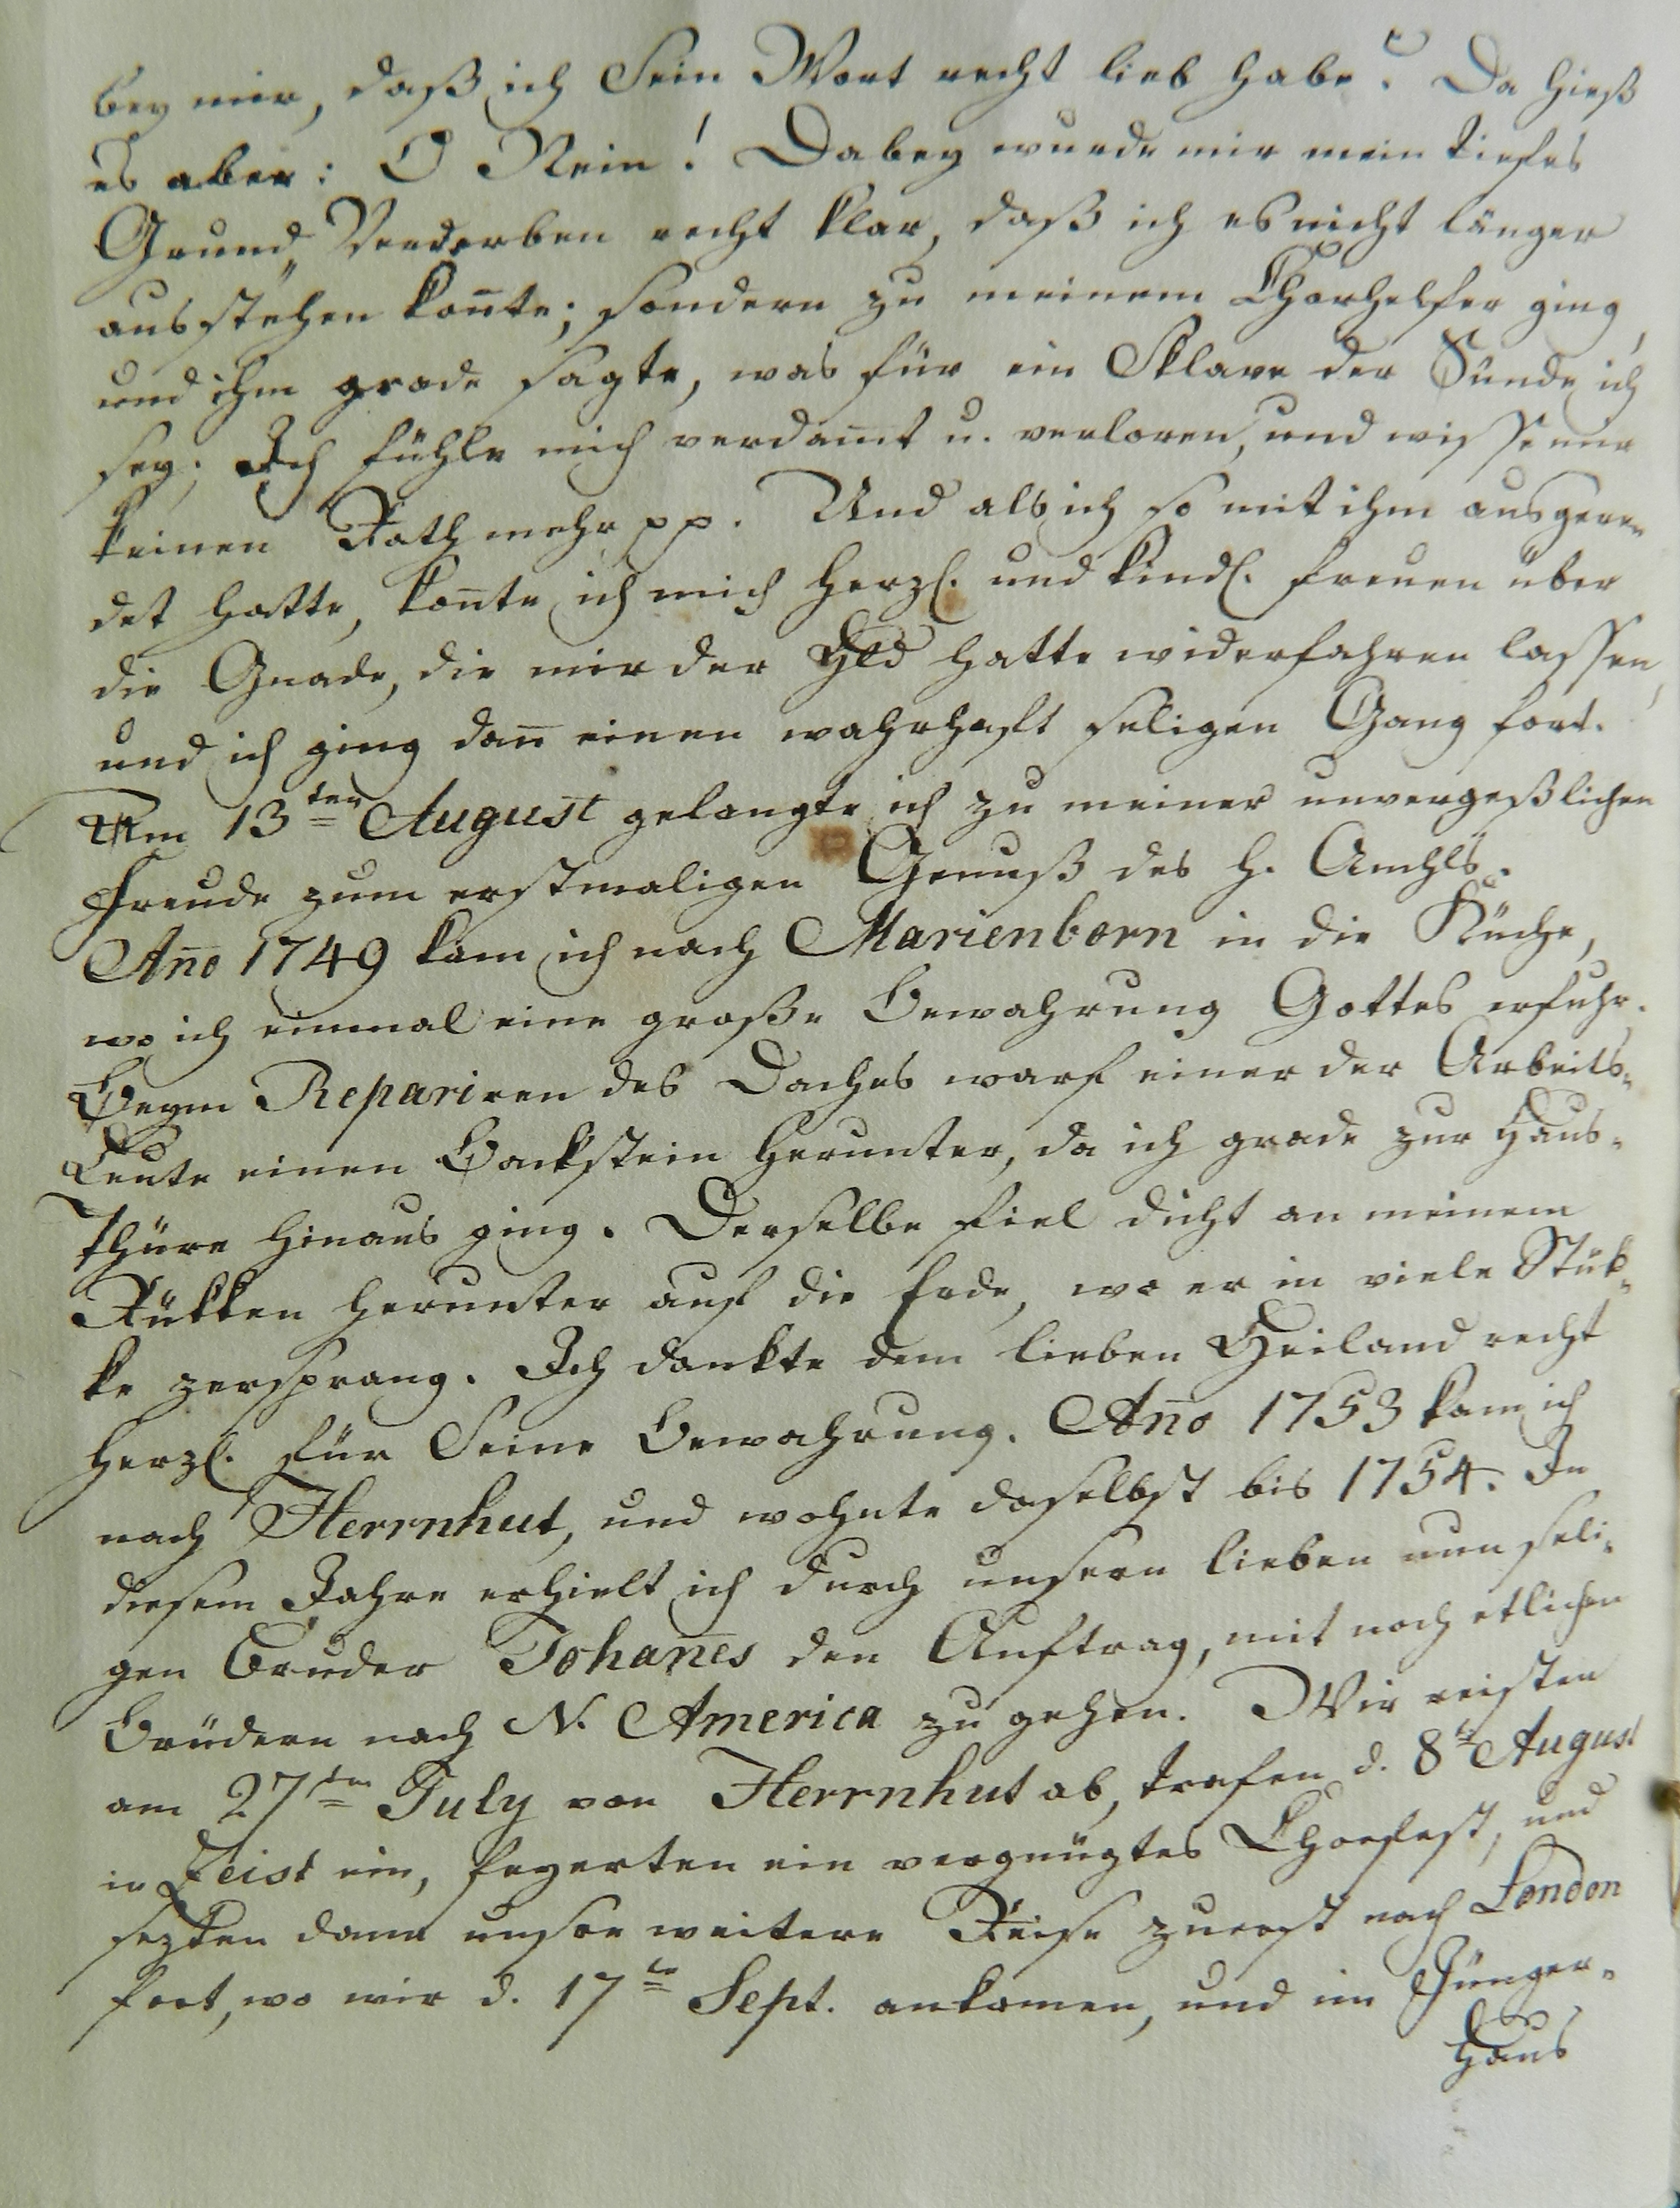 bey mir, daß ich Sein Wort recht lieb habe? Da hieß
es aber: O Nein! Dabey wurde mir mein tiefes
Grund„Verderben recht klar, daß ich es nicht länger
ausstehen kon̄te; sondern zu meinem Chorhelfer ging,
und ihm grade sagte, was für ein Sklave der Sünde ich
sey; Ich fühle mich verdam̄t u. verloren, und wisse nur
keinen Rath mehr pp. Und als ich so mit ihm ausgere„
det hatte, kon̄te ich mich herzl. und kindl. freuen über
die Gnade, die mir der Hld hatte widerfahren lassen,
und ich ging dan̄ einen wahrhaft seligen Gang fort.
Am 13ten August gelangte ich zu meiner unvergeßlichen
Freude zum erstmaligen Genuß des h. Amhls.
An̄o 1749 kam ich nach Marienborn in die Küche,
wo ich einmal eine große Bewahrung Gottes erfuhr.
Beym Repariren des Daches warf einer der Arbeits„
Leute einen Backstein herunter, da ich grade zur Haus„
Thüre hinaus ging. Derselbe fiel dicht an meinem
Rükken herunter auf die Erde, wo er in viele Stük„
ke zersprang. Ich dankte dem lieben Heiland recht
herzl. für Seine Bewahrung. An̄o 1753 kam ich
nach Herrnhut, und wohnte daselbst bis 1754. In
diesem Jahre erhielt ich durch unsern lieben nun seli„
gen Bruder Johan̄es den Auftrag, mit noch etlichen
Brüdern nach N. America zu gehen. Wir reisten
am 27ten July von Herrnhut ab, trafen d. 8te August
in Zeist ein, feyerten ein vergnügtes Chorfest, und
sezten dann unsre weitere Reise zuerst nach London
fort, wo wir d. 17te Sept. ankamen, und im Jünger„
Haus